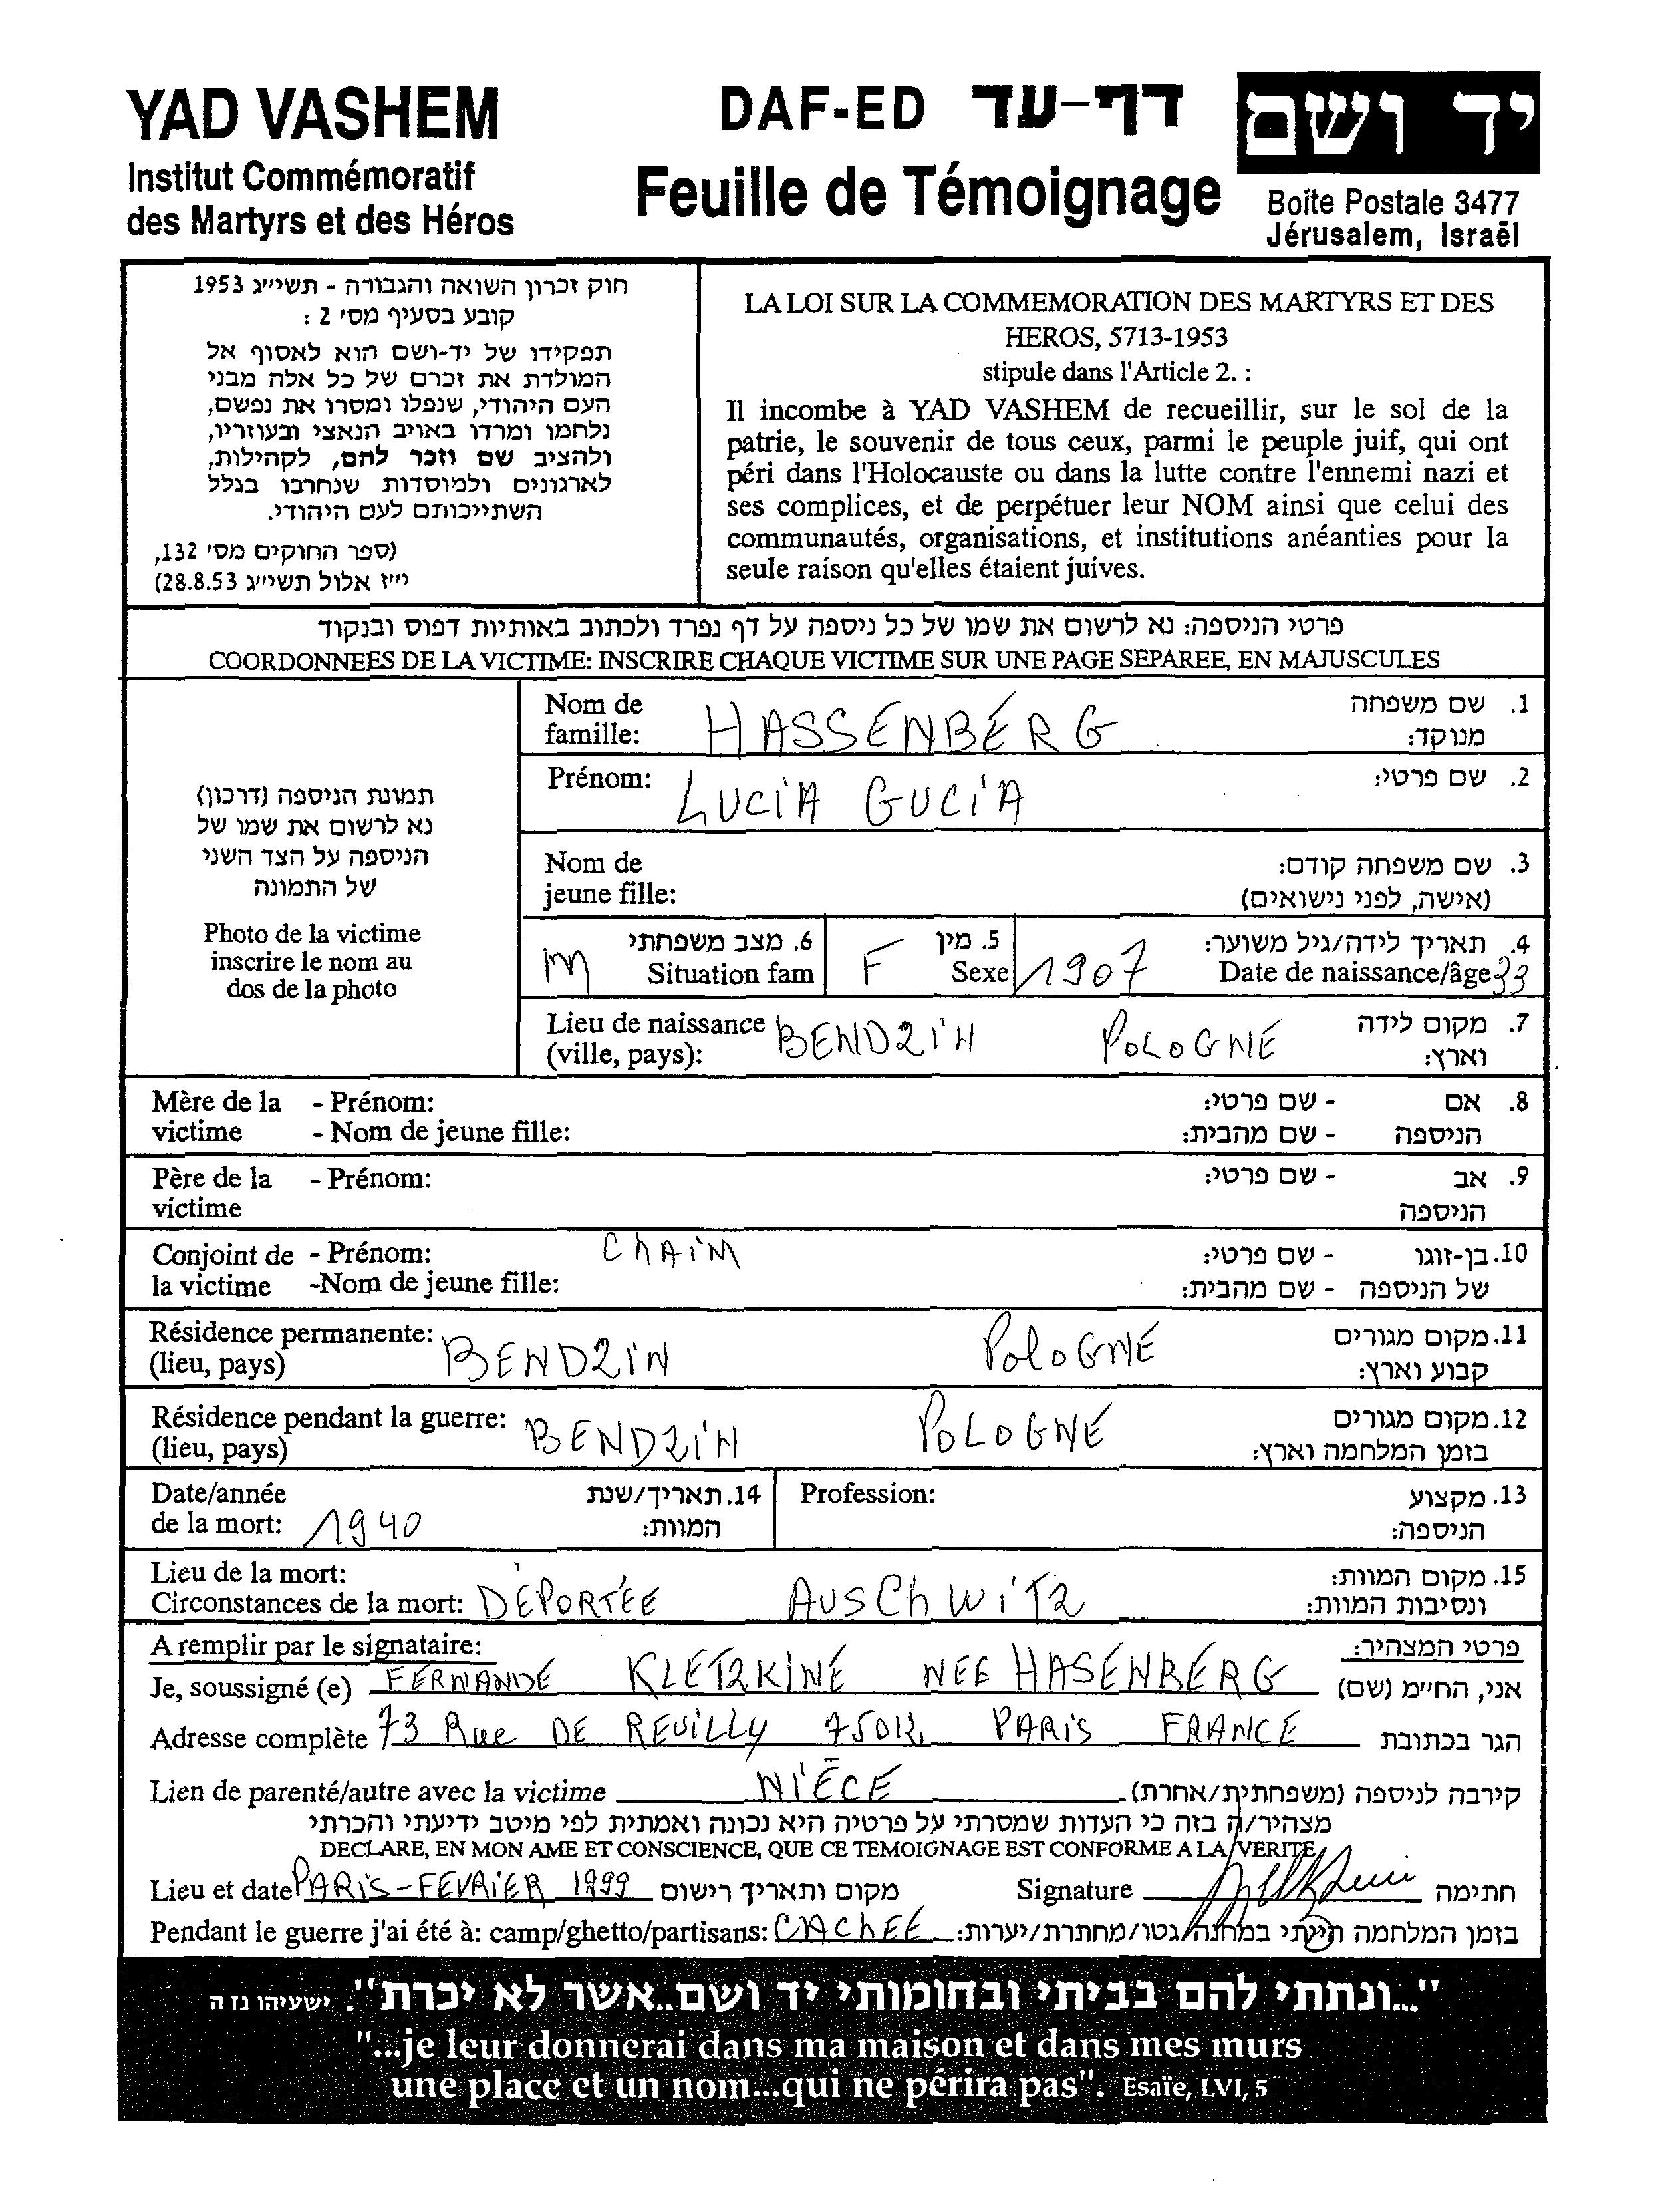 YAD VASHEM
Institut Commémoratif
des Martyrs et des Héros
DAF-ED דף-עד
Feuille de Témoignage
יד ושם
Boîte Postale 3477
Jérusalem, Israël
חוק זכרון השואה והגבורה - תשי״ג 1953
קובע בסעיף מס׳ 2 :
תפקידו של יד-ושם הוא לאסוף אל
המולדת את זכרם של כל אלה מבני
העם היהודי, שנפלו ומסרו את נפשם,
נלחמו ומרדו באויב הנאצי ובעוזריו,
ולהציב שם וזכר להם, לקהילות,
לארגונים ולמוסדות שנחרבו בגלל
השתייכותם לעם היהודי.
(ספר החוקים מס׳ 132,
י״ז אלול תשי״ג 28.8.53)
LA LOI SUR LA COMMEMORATION DES MARTYRS ET DES
HEROS, 5713-1953
stipule dans l'Article 2. :
Il incombe à YAD VASHEM de recueillir, sur le sol de la
patrie, le souvenir de tous ceux, parmi le peuple juif, qui ont
péri dans l'Holocauste ou dans la lutte contre l'ennemi nazi et
ses complices, et de perpétuer leur NOM ainsi que celui des
communautés, organisations, et institutions anéanties pour la
seule raison qu'elles étaient juives.
פרטי הניספה: נא לרשום את שמו של כל ניספה על דף נפרד ולכתוב באותיות דפוס ובנקוד
COORDONNEES DE LA VICTIME: INSCRIRE CHAQUE VICTIME SUR UNE PAGE SEPAREE, EN MAJUSCULES
תמונת הניספה (דרכון)
נא לרשום את שמו של
הניספה על הצד השני
של התמונה
Photo de la victime
inscrire le nom au
dos de la photo
Nom de famille: HASSENBERG 1. שם משפחה מנוקד:
Prénom: LUCIA GUCIA 2. שם פרטי:
Nom de jeune fille: 3. שם משפחה קודם: (אישה, לפני נישואים)
M 6. מצב משפחתי Situation fam F 5. מין Sexe 1907 4. תאריך לידה/גיל משוער: Date de naissance/âge 33
Lieu de naissance (ville, pays): BENDZIN POLOGNE 7. מקום לידה וארץ:
Mère de la - Prénom: - שם פרטי: 8. אם
victime - Nom de jeune fille: - שם מהבית: הניספה
Père de la - Prénom: - שם פרטי: 9. אב
victime הניספה
Conjoint de - Prénom: CHAIM - שם פרטי: 10. בן-זוגו
la victime -Nom de jeune fille: - שם מהבית: של הניספה
Résidence permanente: (lieu, pays) BENDZIN POLOGNE 11. מקום מגורים קבוע וארץ:
Résidence pendant la guerre: (lieu, pays) BENDZIN POLOGNE 12. מקום מגורים בזמן המלחמה וארץ:
Date/année de la mort: 1940 14. תאריך/שנת המוות: Profession: 13. מקצוע הניספה:
Lieu de la mort: 15. מקום המוות:
Circonstances de la mort: DEPORTÉE AUSCHWITZ ונסיבות המוות:
A remplir par le signataire: פרטי המצהיר:
Je, soussigné (e) FERNANDE KLETZKINE NEE HASENBERG אני, החי״מ (שם)
Adresse complète 73 Rue DE REUILLY 75012 PARIS FRANCE הגר בכתובת
Lien de parenté/autre avec la victime NIÈCE קירבה לניספה (משפחתית/אחרת)
מצהיר/ה בזה כי העדות שמסרתי על פרטיה היא נכונה ואמתית לפי מיטב ידיעתי והכרתי
DECLARE, EN MON AME ET CONSCIENCE, QUE CE TEMOIGNAGE EST CONFORME A LA VERITE
Lieu et date PARIS-FEVRIER 1999 מקום ותאריך רישום Signature חתימה
Pendant le guerre j'ai été à: camp/ghetto/partisans: CACHEE בזמן המלחמה הייתי במחנה/גטו/מחתרת/יערות:
"...ונתתי להם בביתי ובחומותי יד ושם..אשר לא יכרת". ישעיהו נז ה
"...je leur donnerai dans ma maison et dans mes murs
une place et un nom...qui ne périra pas". Esaïe, LVI, 5